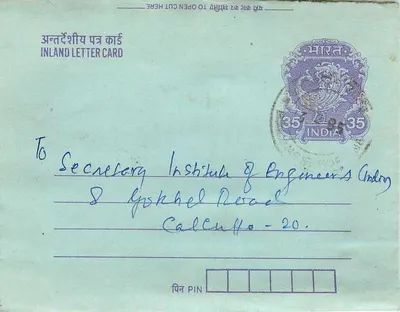 यहां काट कर खोलिए TO OPEN CUT HERE
अन्तर्देशीय पत्र कार्ड
INLAND LETTER CARD
भारत
35 35
INDIA
To
Secretary Institute of Engineers (India)
8 Gokhel Road
Calcutta - 20.
पिन PIN